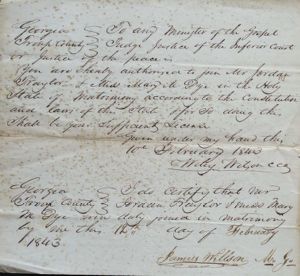 Georgia To any Minister of the Gospel
Troup County Judge Justice of the Inferior Court
or Justice of the peace
You are hereby authorised to join Mr Jordan
Traylor & Miss Mary M Dye in the Holy
State of Matrimony according to the Constitution
and laws of this State & for So doing this
Shall be your Sufficient License
Given under my hand this
February 1843
Wiley Wilson CCO
Georgia I do certify that Mr
Troup County Jordan Traylor & miss Mary
M Dye were duly joined in matrimony
by me this day of February
1843
James Willson M. G.